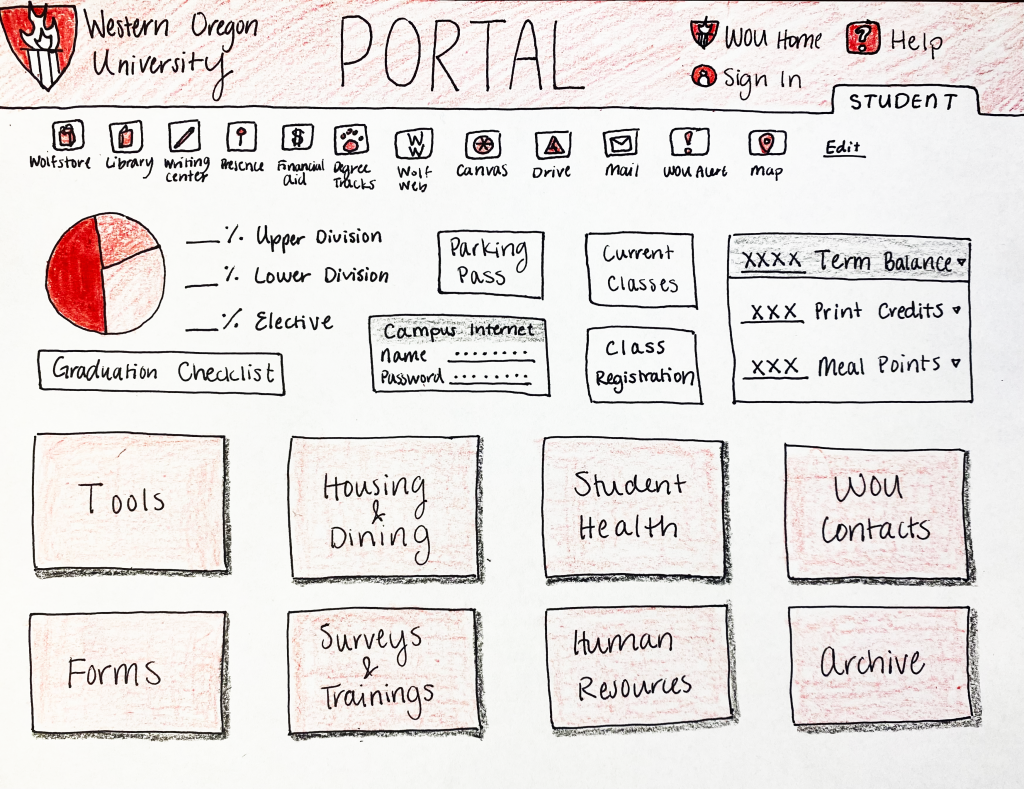 Western Oregon
University
PORTAL
WOU Home
Help
Sign In
STUDENT
Wolfstore
Library
Writing
Center
Presence
$
Financial
aid
Degree
Tracks
W
W
Wolf
Web
Canvas
Drive
Mail
!
WOU Alert
Map
Edit
___% Upper Division
___% Lower Division
___% Elective
Graduation Checklist
Parking
Pass
Campus Internet
Name ........
Password ........
Current
Classes
Class
Registration
XXXX Term Balance
XXX Print Credits
XXX Meal Points
Tools
Housing
&
Dining
Student
Health
WOU
Contacts
Forms
Surveys
&
Trainings
Human
Resources
Archive